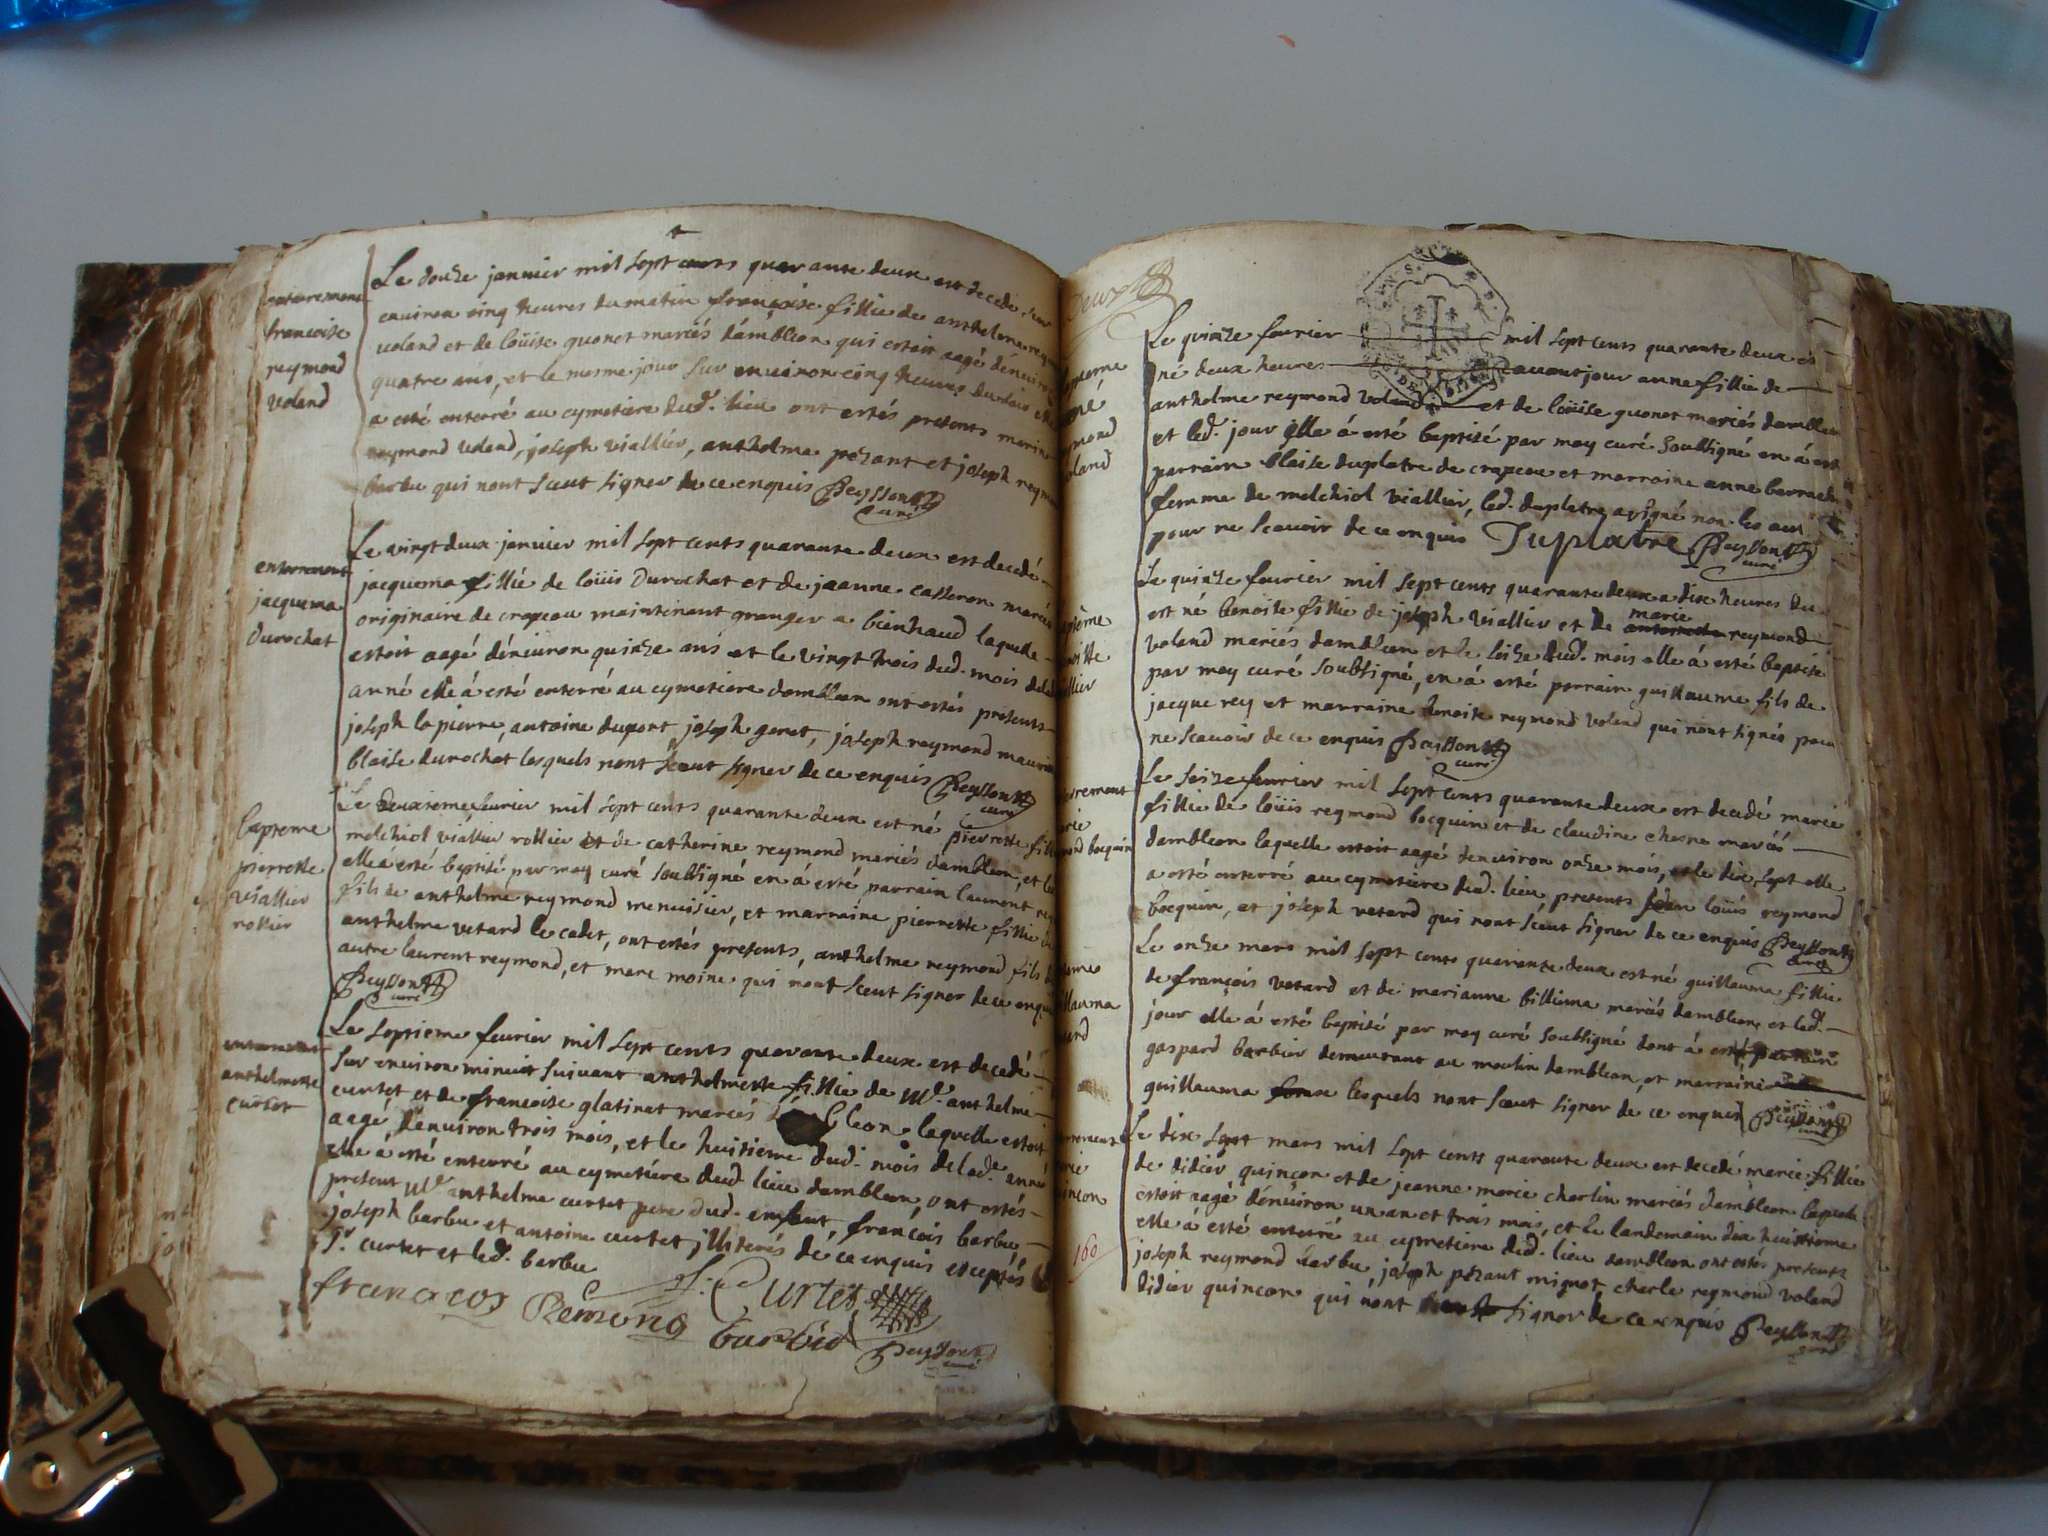 enterrement
francoise
reymond
voland
Le douze janvier mil sept cents quarante deux est decedé sur
environ cinq heures du matin françoise fillie de anthelme
voland et de loüise guonet mariés dambleon qui estoit aagé dénviron
quatre ans, et le mesme jour sur environ cinq heures du soir elle
a esté enterré au cymetiere dud. lieu ont estés presents
reymond voland, joseph viallier, anthelme pézant et joseph
barbu qui nont sceut signer de ce enquis Peysson
curé
enterrement
jacquema
durochat
Le vingt deux janvier mil sept cents quarante deux est decedé
jacquema fillie de loüis durochat et de jeanne casseron mariés
originaire de crapeou maintenant granger a bienhaud laquelle
estoit aagé dénviron quinze ans et le vingt trois dud. mois
anné elle á esté enterré au cymetiere dambleon ont estés présents
joseph lapierre, antoine dupont joseph genet, joseph reymond
blaise durochat lesquels nont sceut signer de ce enquis Peysson
curé
bapteme
pierrette
viallier
rollier
Le deuxieme fevrier mil sept cents quarante deux est né pierrette
melchiol viallier rollier et de catherine reymond mariés dambleon, et
elle a esté baptisé par moy curé soubsigné en á esté parrain laurent
fils de anthelme reymond menuisier, et marraine pierrette fillie
anthelme vetard le cadet, ont estés presents, anthelme reymond fils
autre laurent reymond, et marc moine qui nont sceut signer de ce enquis
Peysson
curé
enterrement
anthelmette
curtet
Le septieme fevrier mil sept cents quarante deux est decedé
sur environ minuit suivant anthelmette fillie de Mr. anthelme
curtet et de francoise glatinet mariés bleon laquelle estoit
aagé dénviron trois mois, et le huitieme dud. mois de lad. anné
elle á esté enterré au cymetiére dud. lieu dambleon, ont estés
present Mr anthelme curtet pere dud. enfant françois barbu
joseph barbu et antoine curtet, illiterés de ce enquis exceptés
Sr. curtet et led. barbu
francoy Remond Curtet
barbu Peysson
curé
Deux
Le quinze fevrier mil sept cents quarante deux est
né deux heures avant jour anne fillie de
anthelme reymond voland et de loüise guonet mariés dambleon
et led. jour elle á esté baptisé par moy curé soubsigné en á esté
parrain blaise duplatre de crapeou et marraine anne
femme de melchiol viallier, led. duplatre a signé non les aux
pour ne scavoir de ce enquis Duplatre Peysson
curé
Le quinze fevrier mil sept cents quarante deux a dix heures du
est né benoite fillie de joseph viallier et de marie reymond
voland mariés dambleon et le seize dud. mois elle á esté baptisé
par moy curé soubsigné, en á esté parrain guillaume fils de
jacque rey et marraine benoite reymond voland qui n'ont signés pour
ne scavoir de ce enquis Peysson
curé
Le seize fevrier mil sept cents quarante deux est decedé marie
fillie de loüis reymond bocquin et de claudine chesne mariés
dambleon laquelle estoit aagé denviron onze mois, et le dix sept elle
a esté enterré au cymetiere dud. lieu, presents loüis reymond
bocquin, et joseph vetard qui nont sceut signer de ce enquis Peysson
curé
Le onze mars mil sept cents quarante deux est né guillauma fillie
de françois vetard et de marianne billiema mariés dambleon, et led.
jour elle á esté baptisé par moy curé soubsigné dont á esté parrain
gaspard barbier demeurant au moulin dambleon, et marraine
guillauma lesquels nont sceut signer de ce enquis Peysson
curé
Le dix sept mars mil sept cents quarante deux est decedé marie fillie
de didier quinson et de jeanne marie charlin mariés dambleon laquelle
estoit aagé dénviron un an et trois mois, et le landemain dix huitieme
elle á esté enterré au cymetiere dud. lieu dambleon ont estés presents
joseph reymond barbu, joseph pézant mignot, charle reymond voland
didier quinson qui nont signer de ce enquis Peysson
curé
160